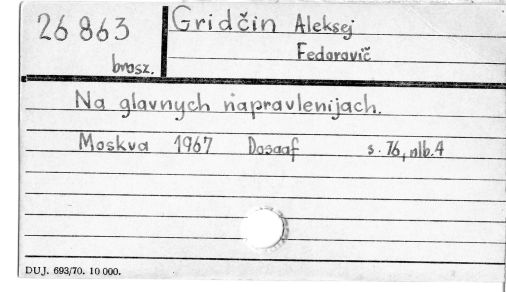 26 863
brosz.
Gridčin Aleksej
Fedorovič
Na glavnych napravlenijach.
Moskva 1967 Dosaaf s. 76, nlb. 4
DUJ. 693/70. 10 000.